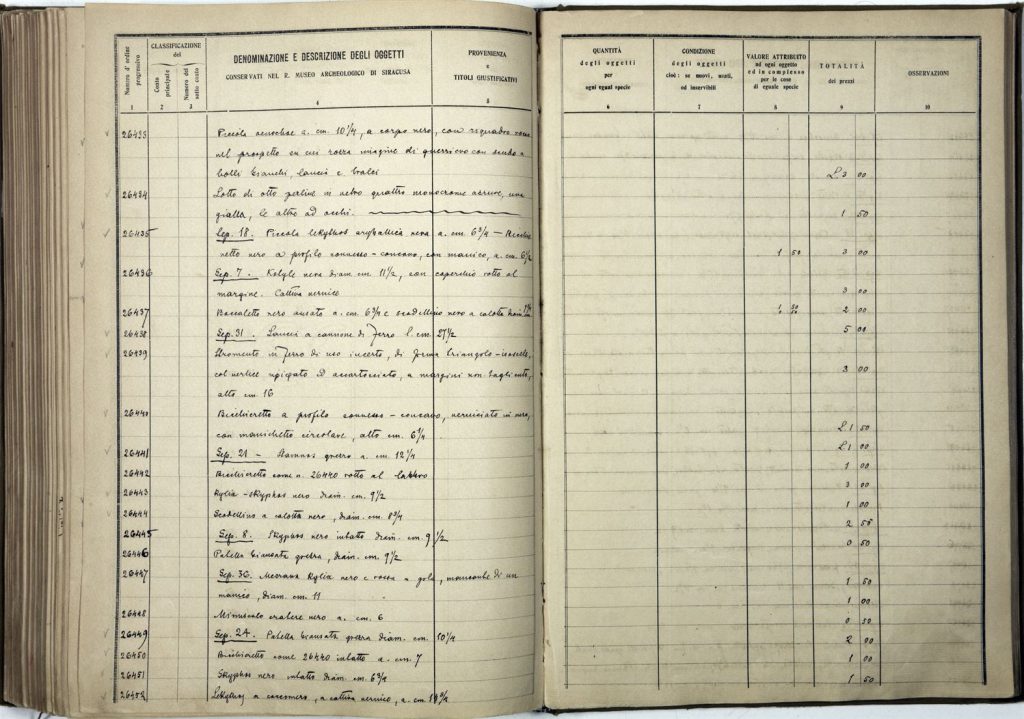 Numero d'ordine progressivo
CLASSIFICAZIONE del
Conto principale
Numero del sotto conto
DENOMINAZIONE E DESCRIZIONE DEGLI OGGETTI
CONSERVATI NEL R. MUSEO ARCHEOLOGICO DI SIRACUSA
PROVENIENZA e TITOLI GIUSTIFICATIVI
QUANTITÀ degli oggetti per ogni egual specie
CONDIZIONE degli oggetti cioè: se nuovi, usati, od inservibili
VALORE ATTRIBUITO ad ogni oggetto ed in complesso per le cose di eguale specie
TOTALITÀ dei prezzi
OSSERVAZIONI
1 2 3 4 5 6 7 8 9 10
26433 Piccola oenochoe a. cm. 10 1/2, a corpo nero, con riquadro rosso
nel prospetto su cui rozza imagine di guerriero con scudo a
bolli bianchi, lancia e L 3 00
26434 Lotto di otto perline in vetro quattro monocrome azzurre, una
gialla, le altre ad occhi. 1 50
26435 Sep. 18. Piccola lekythos nera a. cm. 6 3/4 —
netto nero a profilo connesso-concavo, con manico, a. cm. 6 1/2 1 50 3 00
26436 Sep. 7. Kotyle nera diam. cm. 11 1/2, con coperchio rotto al
margine. Cattiva vernice 3 00
26437 Boccaletto nero ansato a. cm. 6 3/4 e scodellino nero a calotta diam. 1 50 2 00
26438 Sep. 31. Lancia a cannone di ferro l. cm. 27 1/2 5 00
26439 Stromento in ferro di uso incerto, di forma triangolo-isoscele,
col vertice ripiegato ed accartocciato, a margini non taglienti,
alto cm. 16 3 00
26440 Bicchieretto a profilo connesso-concavo, verniciato in nero,
con manichetto circolare, alto cm. 6 3/4 L 1 50
26441 Sep. 21 - Stamnos grezzo a. cm. 12 1/2 L 1 00
26442 Bicchieretto come n. 26440 rotto al labbro 1 00
26443 Kylix-skyphos nero diam. cm. 9 1/2 3 00
26444 Scodellino a calotta nero, diam. cm. 8 3/4 1 00
26445 Sep. 8. Skyphos nero intatto diam. cm. 9 1/2 2 55
26446 Patella biansata grezza, diam. cm. 9 1/2 0 50
26447 Sep. 36. Mezzana Kylix nero e rossa a gola, mancante di un
manico, diam. cm. 11 1 50
26448 Minuscolo cratere nero a. cm. 6 1 00
26449 Sep. 24. Patella biansata grezza diam. cm. 10 1/4 0 50
26450 Bicchieretto come 26440 intatto a. cm. 7 2 00
26451 Skyphos nero intatto diam. cm. 6 3/4 1 00
26452 Lekythos a cattiva vernice, a. cm. 1 50